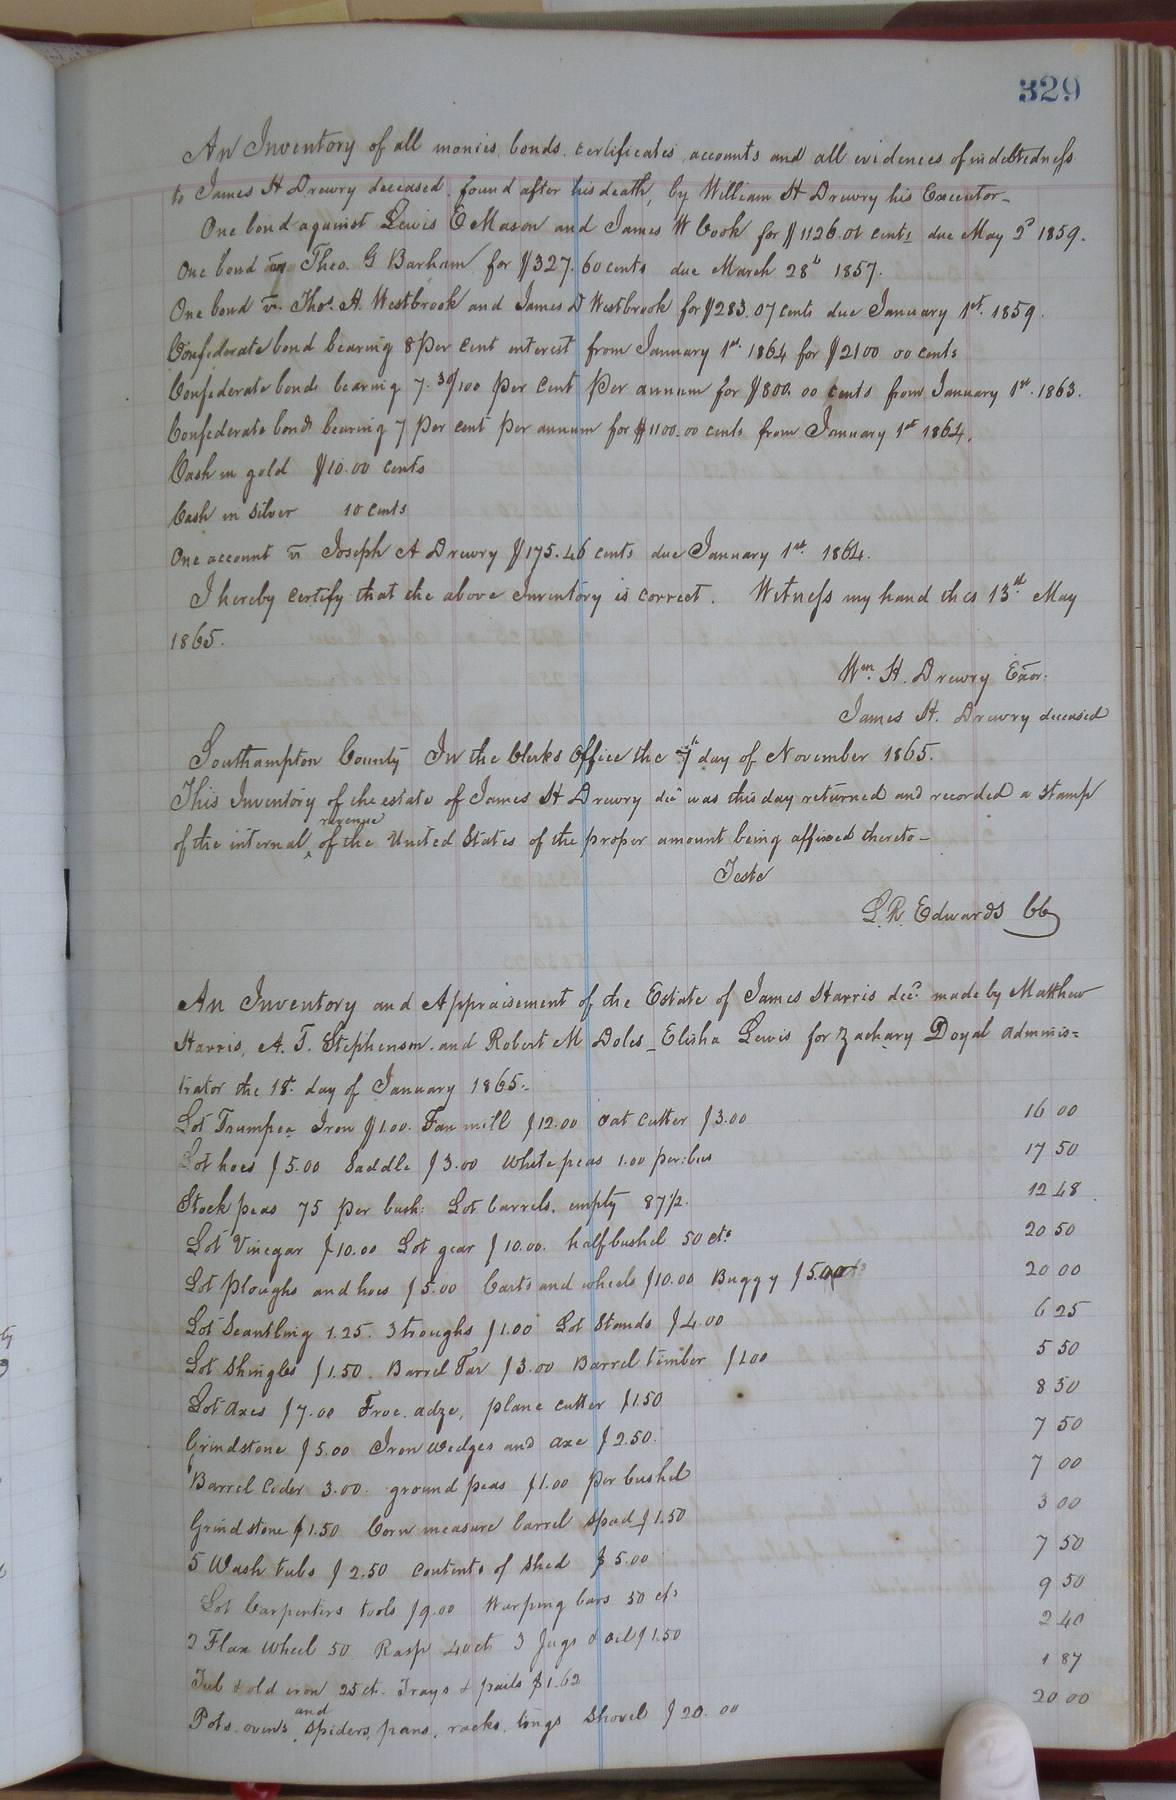 329
An Inventory of all monies, bonds, certificates, accounts and all evidences of indebtedness
to James H Drewry deceased, found after his death, by William H Drewry his Executor—
One bond against Lewis E Mason and James W Cook for $1126.01 cents due May 2d 1859.
One bond vs Theo. G Barham for $327.60 cents due March 28th 1857.
One bond vs. Thos. H. Westbrook and James D Westbrook for $283.07 cents due January 1st. 1859.
Confederate bond bearing 8 per cent interest from January 1st. 1864 for $2100 00 cents
Confederate bonds bearing 7.30/100 per cent per annum for $800.00 cents from January 1st. 1863.
Confederate bonds bearing 7 per cent per annum for $1100.00 cents from January 1st 1864.
Cash in gold $10.00 cents
Cash in silver 10 cents
One account vs Joseph A Drewry $175.46 cents due January 1st. 1864.
I hereby certify that the above Inventory is correct. Witness my hand this 13th May
1865.
Wm. H. Drewry Exor.
James H. Drewry deceased
Southampton County In the Clerks Office the 7th day of November 1865.
This Inventory of the estate of James H Drewry decd was this day returned and recorded a stamp
of the internal revenue of the United States of the proper amount being affixed thereto—
Teste
L. R. Edwards CC
An Inventory and Appraisement of the Estate of James Harris decd. made by Matthew
Harris, A. T. Stephenson and Robert M Doles_ Elisha Lewis for Zachary Doyal adminis=
trator the 18t. day of January 1865:-
Lot Trumpea Iron $1.00. Fan mill $12.00 oat cutter $3.00 16 00
Lot hoes $5.00 Saddle $3.00 White peas 1.00 per:bus 17 50
Stock peas 75 per bush: Lot barrels, empty 87½. 12 48
Lot Vinegar $10.00 Lot gear $10.00. half bushel 50 cts 20 50
Lot ploughs and hoes $5.00 Carts and wheels $10.00 Buggy $5.00 20 00
Lot Scantling 1.25. 3 troughs $1.00 Lot Stands $4.00 6 25
Lot Shingles $1.50. Barrel Tar $3.00 Barrel timber $1.00 5 50
Lot axes $7.00 Froe, adze, plane cutter $1.50 8 50
Grindstone $5.00 Iron wedges and axe $2.50. 7 50
Barrel Cider 3.00. ground peas $1.00 per bushel 7 00
Grindstone $1.50 Corn measure barrel spad $1.50 3 00
5 Wash tubs $2.50 contents of shed $5.00 7 50
Lot Carpenters tools $9.00 Warping bars 50 cts 9 50
2 Flax Wheel 50 Rasp 40ct 3 Jugs & oil $1.50 2 40
Tub & old iron 25 ct. Trays & pails $1.62 1 87
Pots. ovens and spiders, pans, racks, tongs Shovel $20.00 20 00